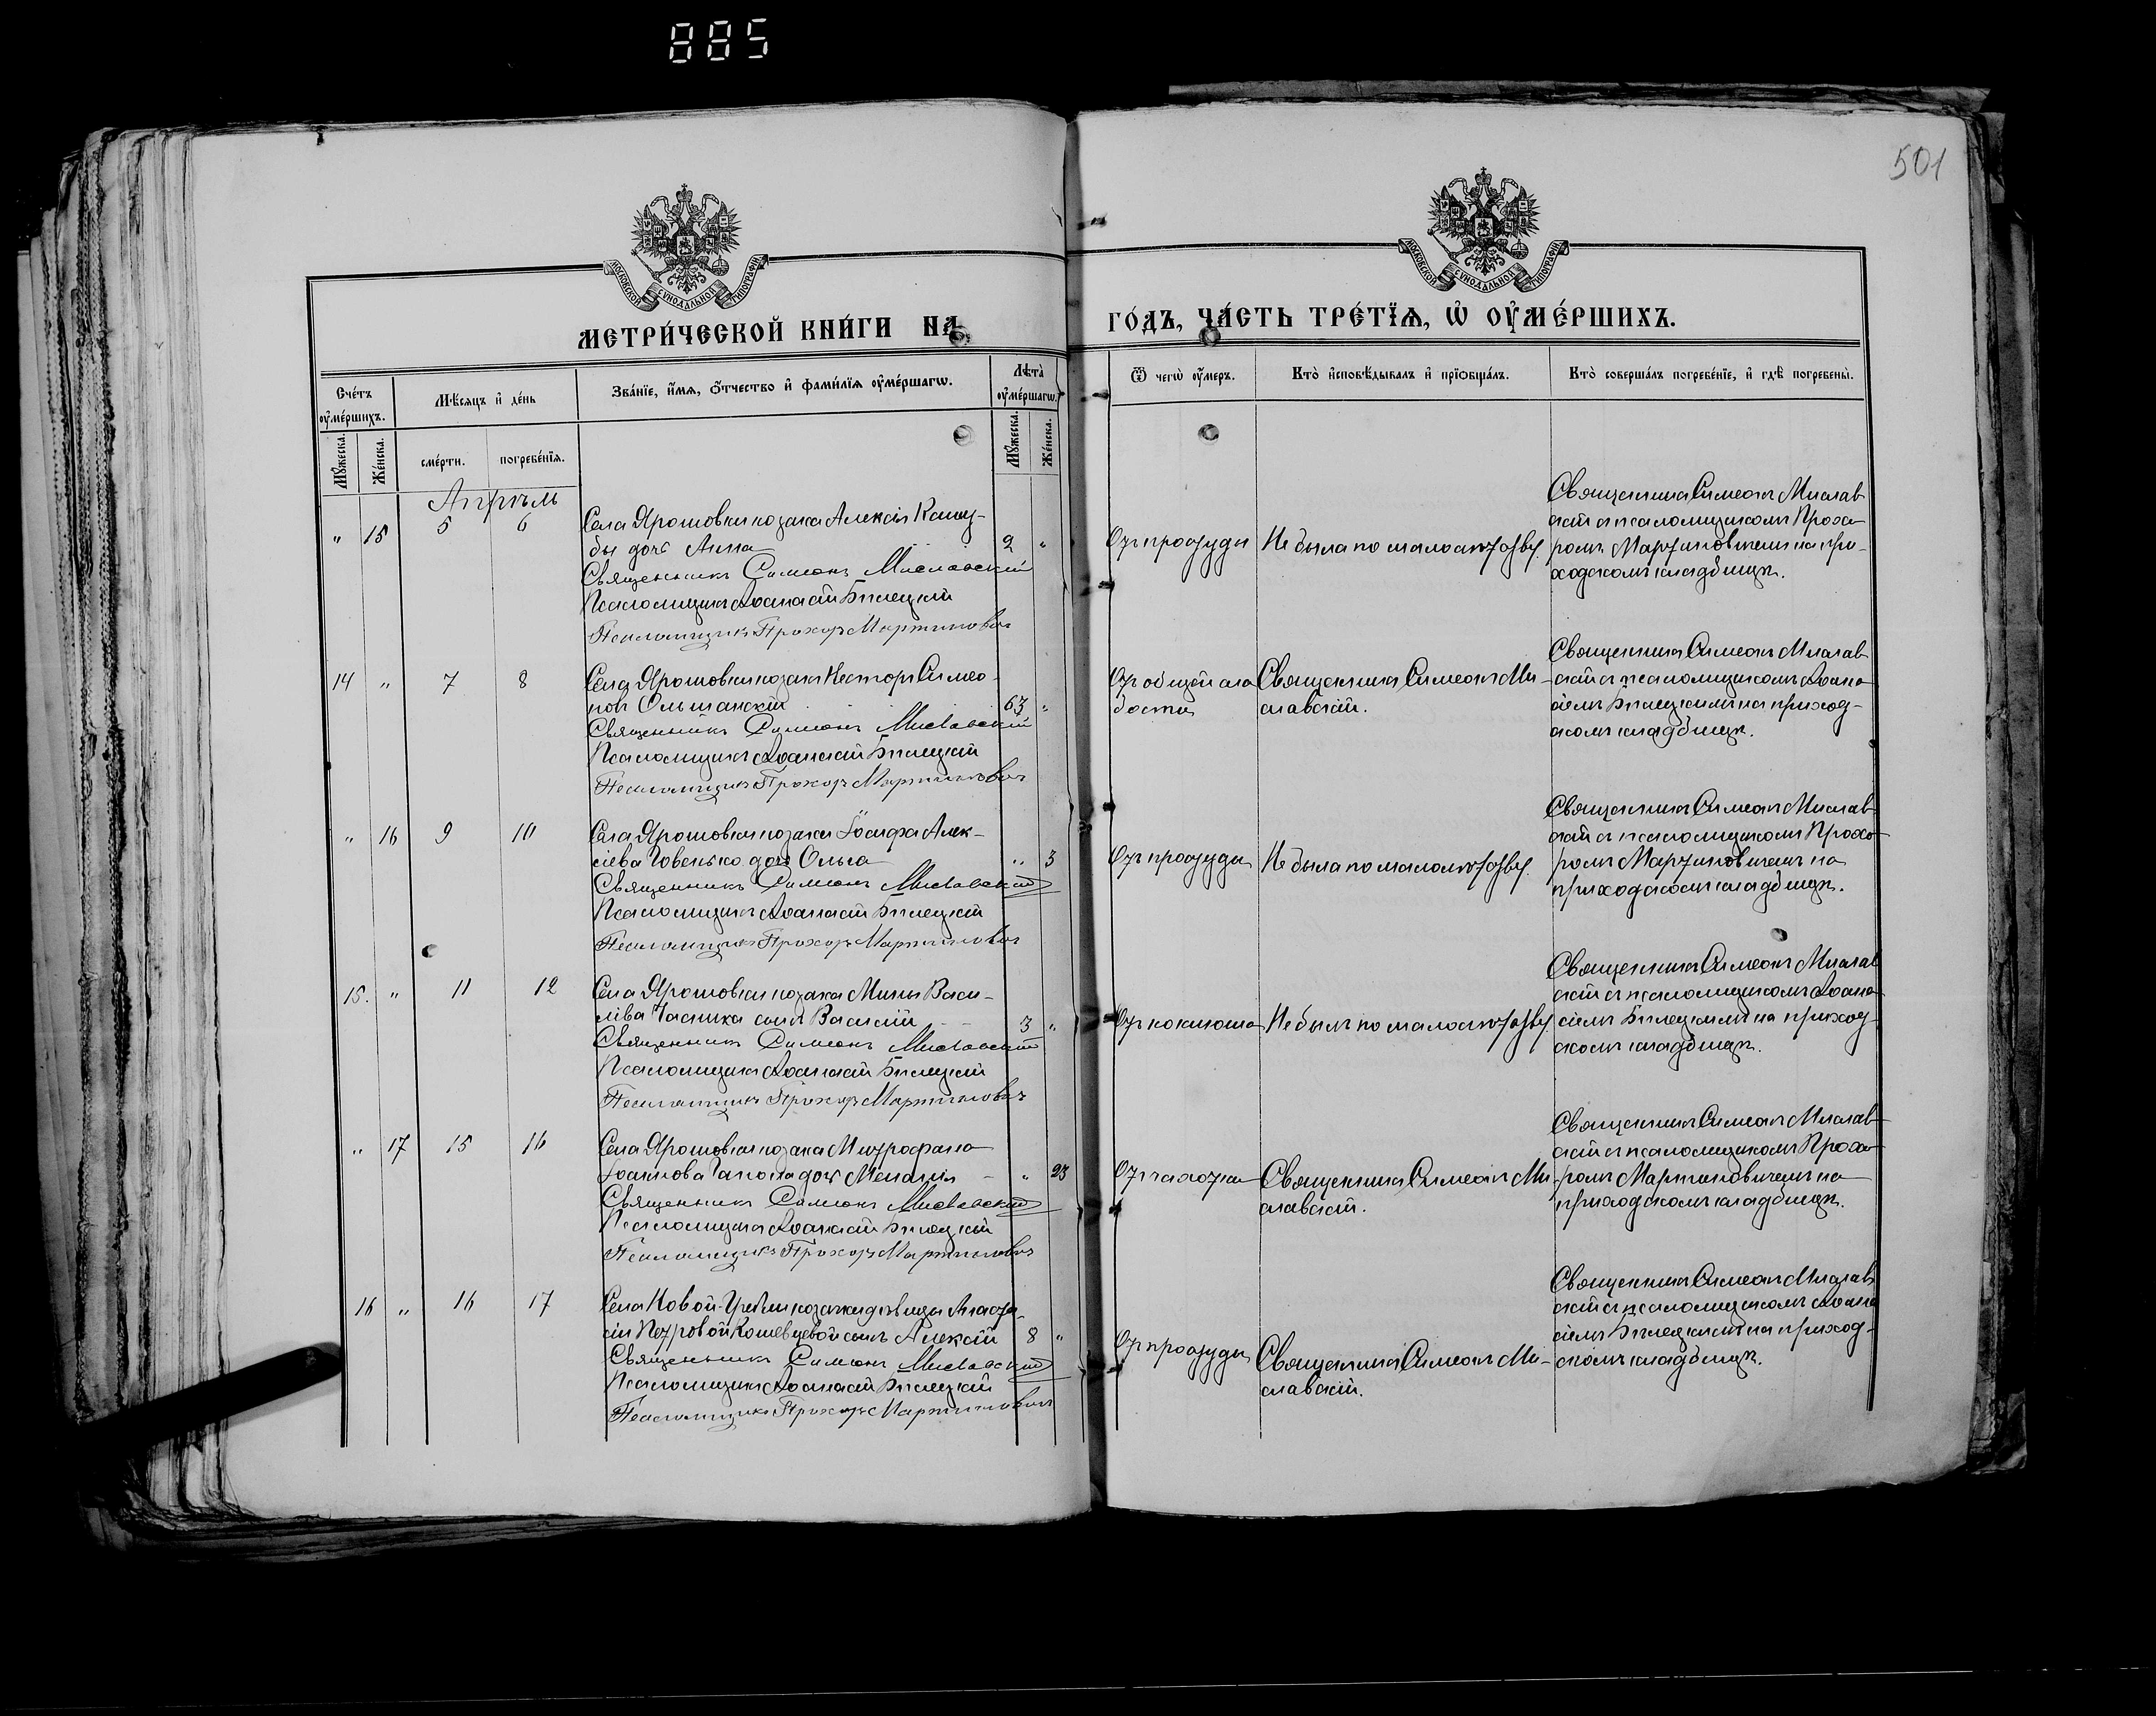 885
501
МОСКОВСКОЙ СѴНОДАЛЬНОЙ ТИПОГРАФІИ
МОСКОВСКОЙ СѴНОДАЛЬНОЙ ТИПОГРАФІИ
МЕТРИ́ЧЕСКОЙ КНИ́ГИ НА
ГО́ДЪ, ЧА́СТЬ ТРЕ́ТЇѦ, Ѡ ОУМЕ́РШИХЪ.
Сче́тъ оуме́ршихъ.
Мѣ́сяцъ и де́нь
Зва́нїе, и́мѧ, о́тчество и фами́лїѧ оуме́ршагѡ.
Лѣта̀ оуме́ршагѡ.
Ѿ чегѡ̀ оу́меръ.
Кто̀ исповѣ́дывалъ и прїѡбща́лъ.
Кто̀ соверша́лъ погребе́нїе, и гдѣ̀ погребены̀.
Мꙋ́жеска.
Же́нска.
сме́рти.
погребе́нїѧ.
Мꙋ́жеска.
Же́нска.
Апрѣль
" 15 5 6
Села Ярошовки козака Алексія Кашу-
бы дочь Анна 2 "
Священникъ Симеонъ Миславскій
Псаломщикъ Аѳанасій Бѣлецкій
Псаломщикъ Прохоръ Мартиновичъ
Отъ простуды
Не была по малолѣтству.
Священникъ Симеонъ Мислав-
скій съ псаломщикомъ Прохо-
ромъ Мартиновичемъ на при-
ходскомъ кладбищѣ.
14 " 7 8
Села Ярошовки козакъ Несторъ Симео-
новъ Ольшанскій 63 "
Священникъ Симеонъ Миславскій
Псаломщикъ Аѳанасій Бѣлецкій
Псаломщикъ Прохоръ Мартиновичъ
Отъ общей сла-
бости
Священникъ Симеонъ Ми-
славскій.
Священникъ Симеонъ Мислав-
скій съ псаломщикомъ Аѳана-
сіемъ Бѣлецкимъ на приход-
скомъ кладбищѣ.
" 16 9 10
Села Ярошовки козака Іосифа Алек-
сіева Говенько дочь Ольга " 3
Священникъ Симеонъ Миславскій
Псаломщикъ Аѳанасій Бѣлецкій
Псаломщикъ Прохоръ Мартиновичъ
Отъ простуды
Не была по малолѣтству.
Священникъ Симеонъ Мислав-
скій съ псаломщикомъ Прохо-
ромъ Мартиновичемъ на
приходскомъ кладбищѣ.
15. " 11 12
Села Ярошовки козака Мины Васи-
ліева Часника сынъ Василій 3 "
Священникъ Симеонъ Миславскій
Псаломщикъ Аѳанасій Бѣлецкій
Псаломщикъ Прохоръ Мартиновичъ
Отъ коклюша
Не былъ по малолѣтству
Священникъ Симеонъ Мислав
скій съ псаломщикомъ Аѳана-
сіемъ Бѣлецкимъ на приход-
скомъ кладбищѣ.
" 17 15 16
Села Ярошовки козака Митрофана
Іоаннова Гапона дочь Меланія " 23
Священникъ Симеонъ Миславскій
Псаломщикъ Аѳанасій Бѣлецкій
Псаломщикъ Прохоръ Мартиновичъ
Отъ чахотки
Священникъ Симеонъ Ми-
славскій.
Священникъ Симеонъ Мислав-
скій съ псаломщикомъ Прохо-
ромъ Мартиновичемъ на
приходскомъ кладбищѣ.
16 " 16 17
Села Новой-Гребли козачки дѣвицы Анаста-
сіи Петровой Кошевцевой сынъ Алексій 8 "
Священникъ Симеонъ Миславскій
Псаломщикъ Аѳанасій Бѣлецкій
Псаломщикъ Прохоръ Мартиновичъ
Отъ простуды
Священникъ Симеонъ Ми-
славскій.
Священникъ Симеонъ Мислав
скій съ псаломщикомъ Аѳана
сіемъ Бѣлецкимъ на приход-
скомъ кладбищѣ.